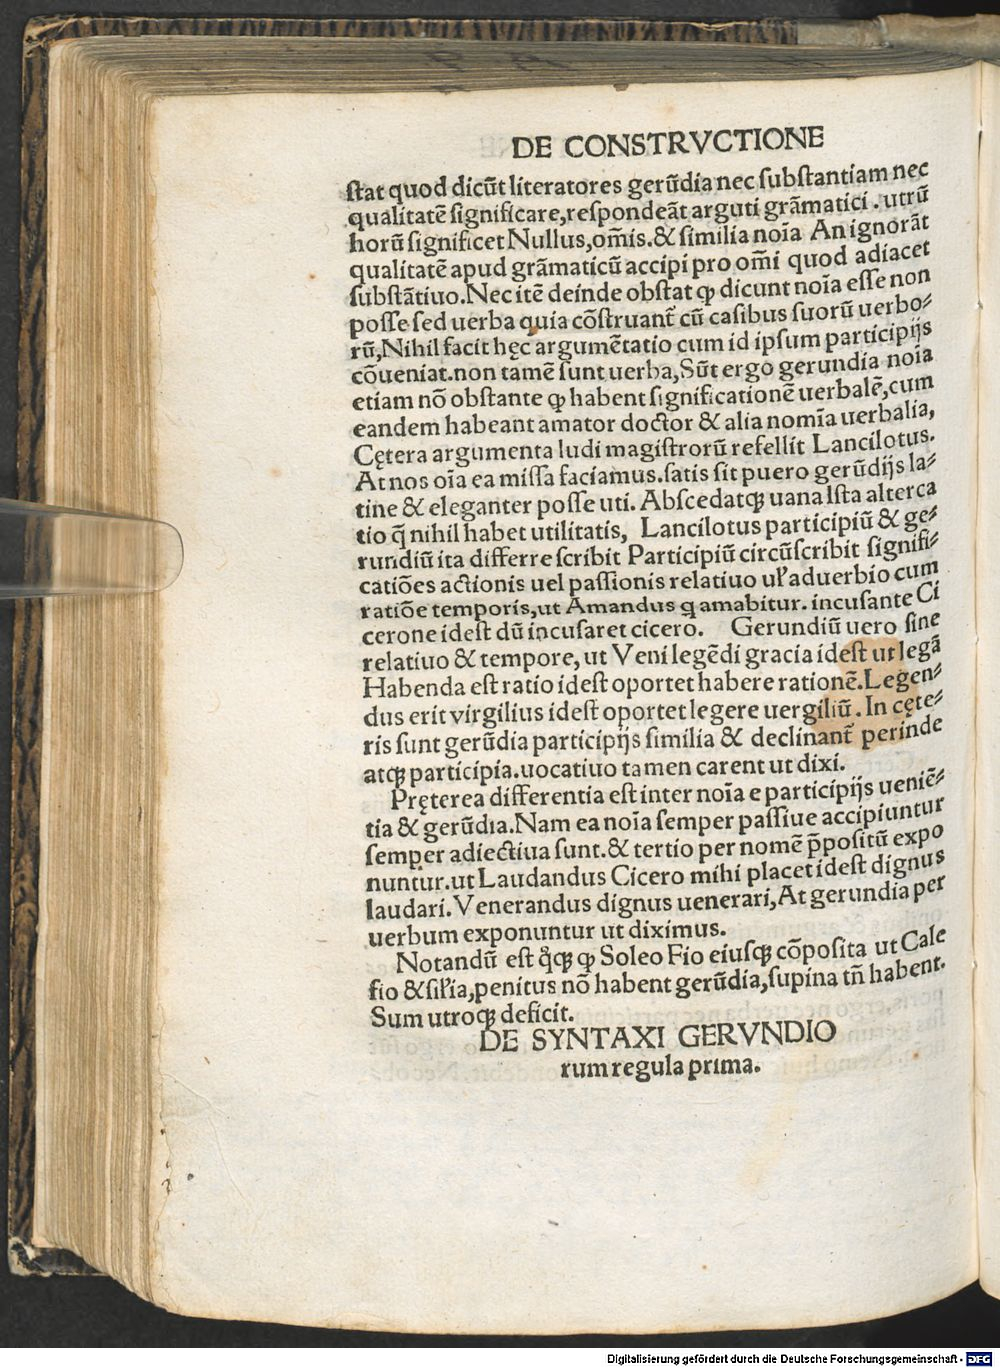 DE CONSTRVCTIONE
stat quod dicūt literatores gerūdia nec substantiam nec
qualitatē significare,respondeāt arguti grāmatici . utrū
horū significet Nullus,om̄is.& similia noīa An ignorāt
qualitatē apud grāmaticū accipi pro om̄i quod adiacet
substātiuo.Nec itē deinde obstat ꝙ dicunt noīa esse non
posse sed uerba quia cōstruant̃ cū casibus suorū uerbo⸗
rū,Nihil facit hęc argumētatio cum id ipsum participijs
cōueniat.non tamē sunt uerba,Sūt ergo gerundia noīa
etiam nō obstante ꝙ habent significationē uerbalē,cum
eandem habeant amator doctor & alia nomīa uerbalia,
Cętera argumenta ludi magistrorū refellit Lancilotus.
At nos oīa ea missa faciamus.satis sit puero gerūdijs la⸗
tine & eleganter posse uti. Abscedatqꝫ uana Ista alterca
tio q̄ nihil habet utilitatis, Lancilotus participiū & ge⸗
rundiū ita differre scribit Participiū circūscribit signifi⸗
catiōes actionis uel passionis relatiuo ul̓ aduerbio cum
ratiōe temporis,ut Amandus q amabitur. incusante Ci
cerone idest dū incusaret cicero. Gerundiū uero sine
relatiuo & tempore, ut Veni legēdi gracia idest ut legā
Habenda est ratio idest oportet habere rationē.Legen⸗
dus erit virgilius idest oportet legere uergiliū. In cęte⸗
ris sunt gerūdia participijs similia & declinant̃ perinde
atqꝫ participia.uocatiuo tamen carent ut dixi.
Pręterea differentia est inter noīa e participijs ueniē⸗
tia & gerūdia.Nam ea noīa semper passiue accipiuntur
semper adiectiua sunt.& tertio per nomē p̄positū expo
nuntur.ut Laudandus Cicero mihi placet idest dignus
laudari. Venerandus dignus uenerari,At gerundia per
uerbum exponuntur ut diximus.
Notandū est q̊qꝫ ꝙ Soleo Fio eiusqꝫ cōposita ut Cale
fio & sil̓ia,penitus nō habent gerūdia,supina tn̄ habent.
Sum utroqꝫ deficit.
DE SYNTAXI GERVNDIO
rum regula prima.
Digitalisierung gefördert durch die Deutsche Forschungsgemeinschaft - DFG